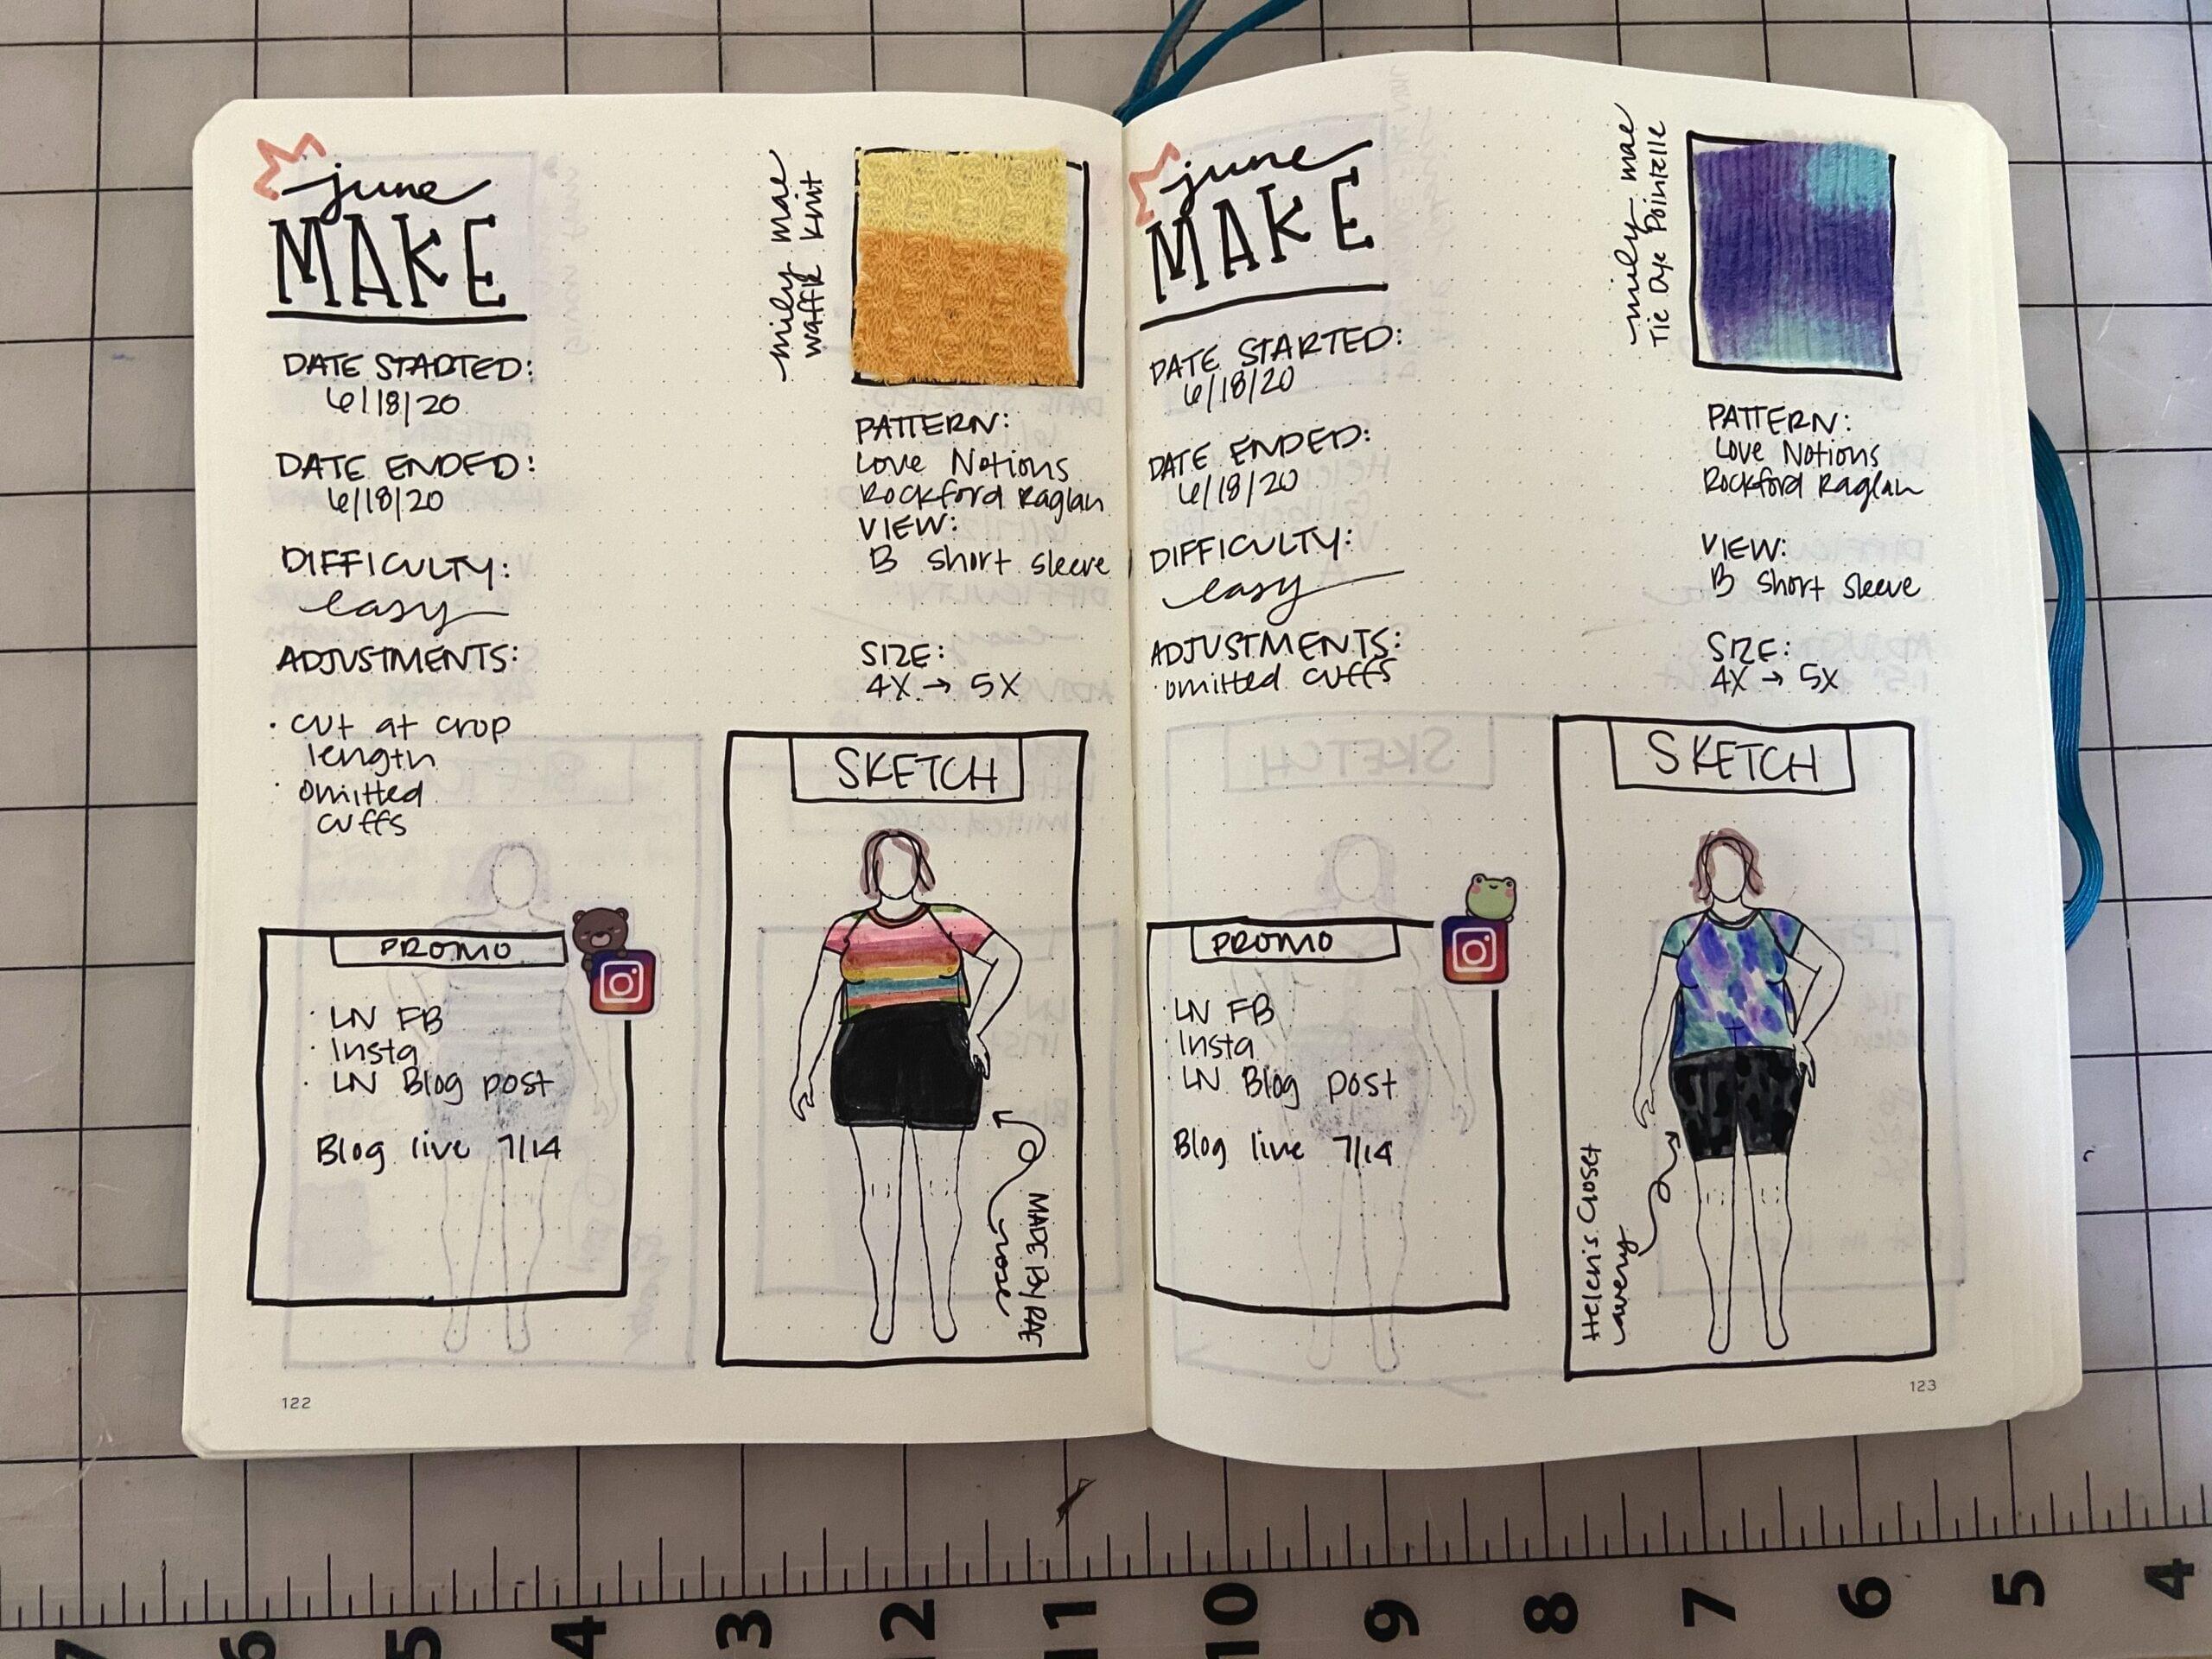 june
MAKE
mily mae
waffle knit
DATE STARTED:
6/18/20
DATE ENDED:
6/18/20
DIFFICULTY:
easy
ADJUSTMENTS:
· cut at crop
length
· omitted
cuffs
PATTERN:
Love Notions
Rockford Raglan
VIEW:
B short sleeve
SIZE:
4X → 5X
PROMO
· LN FB
· Insta
· LN Blog post
Blog live 7/14
SKETCH
MADE By RAE
122
june
MAKE
mily mae
Tie Dye Pointelle
DATE STARTED:
6/18/20
DATE ENDED:
6/18/20
DIFFICULTY:
easy
ADJUSTMENTS:
· omitted cuffs
PATTERN:
Love Notions
Rockford Raglan
VIEW:
B short sleeve
SIZE:
4X → 5X
PROMO
LN FB
· Insta
· LN Blog post
Blog live 7/14
SKETCH
Helen's Closet
avery
123
7 6 5 4 3 2 11 10 9 8 7 6 5 4